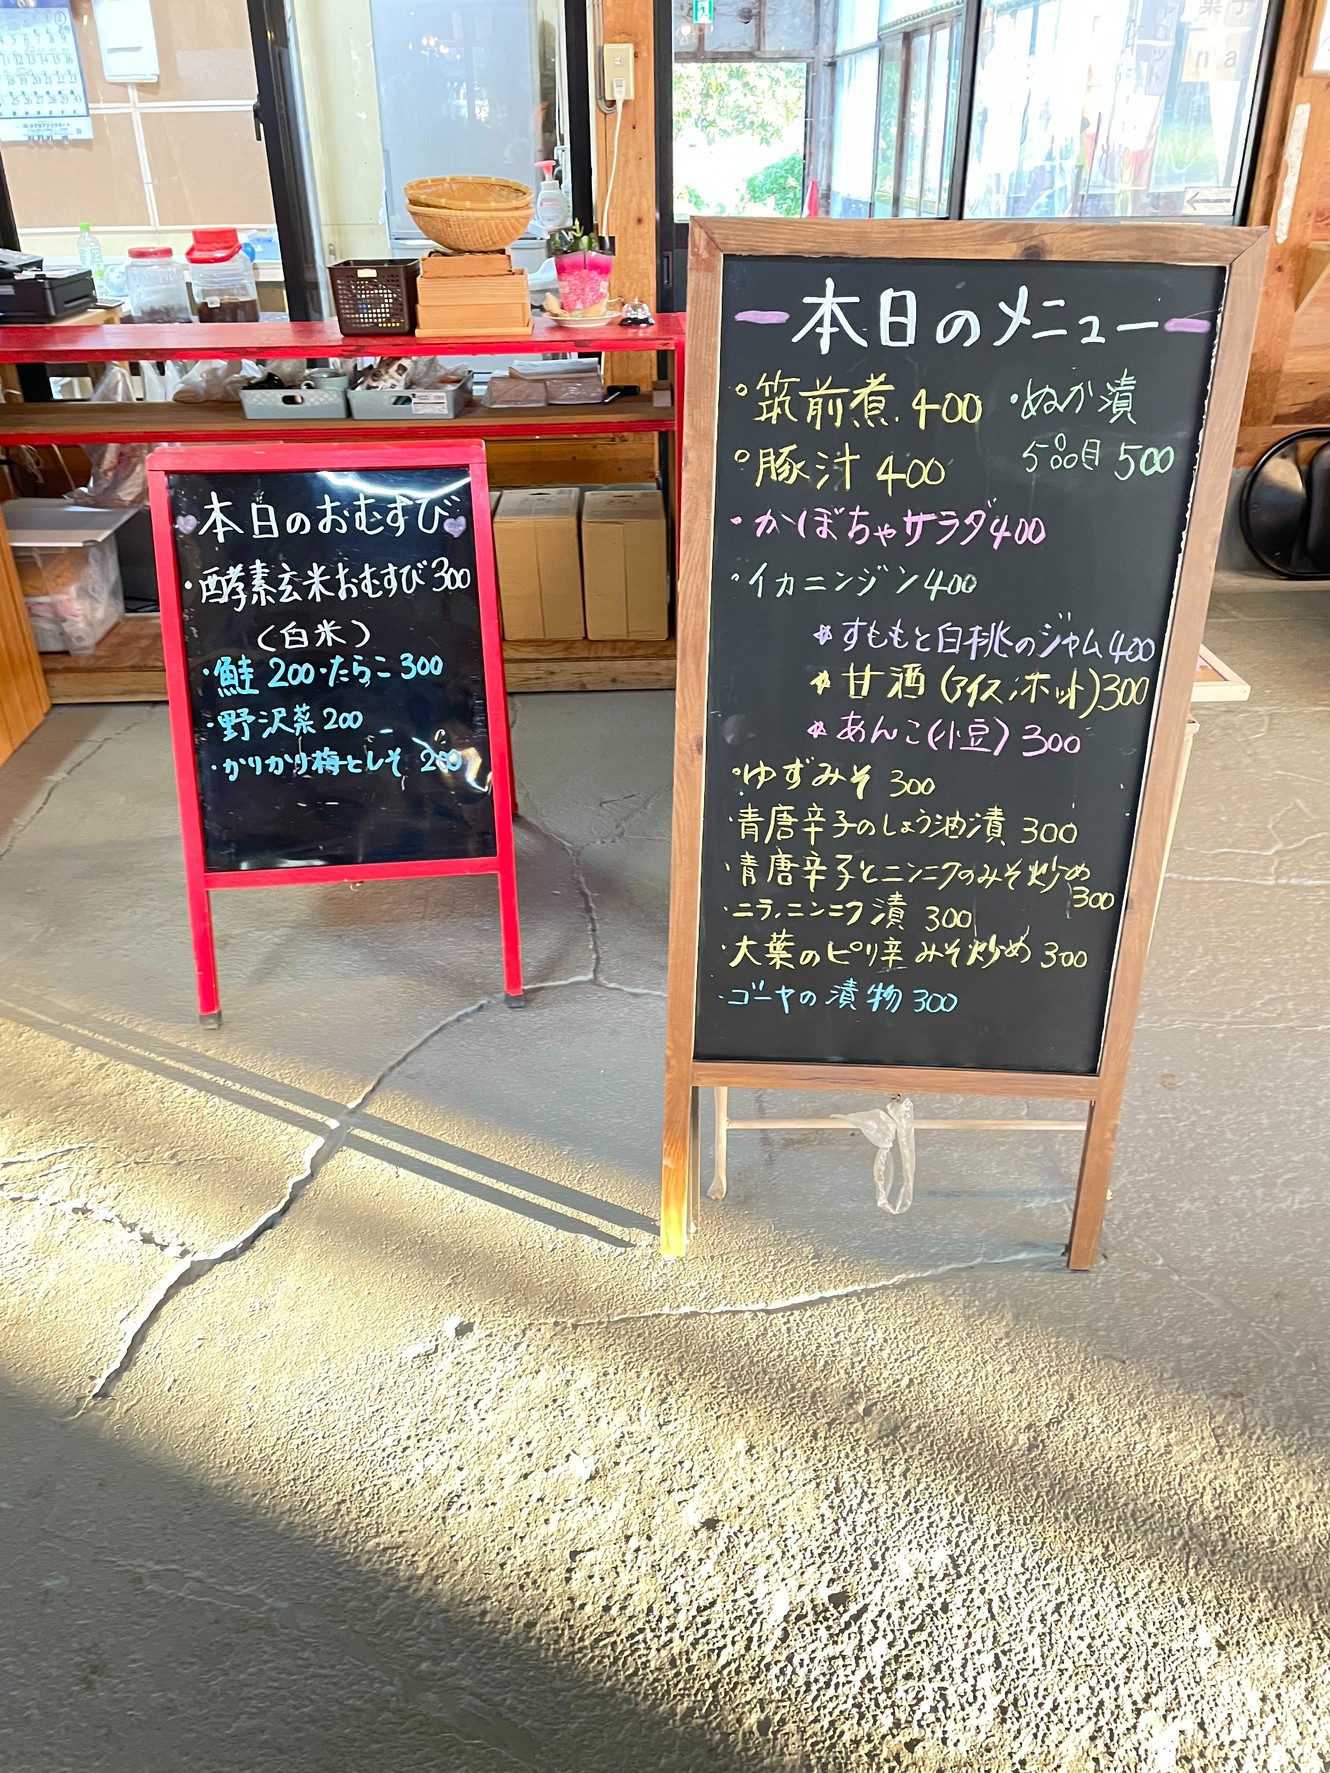 本日のおむすび
・酵素玄米おむすび300
(白米)
・鮭 200・たらこ 300
・野沢菜 200
・かりかり梅としそ 200
本日のメニュー
・筑前煮 400
・ぬか漬
5品目 500
・豚汁 400
・かぼちゃサラダ400
・イカニンジン400
*すももと白桃のジャム400
*甘酒(アイス,ホット)300
*あんこ(小豆) 300
・ゆずみそ 300
・青唐辛子のしょう油漬 300
・青唐辛子とニンニクのみそ炒め
300
・ニラ,ニンニク漬 300
・大葉のピリ辛みそ炒め 300
・ゴーヤの漬物 300